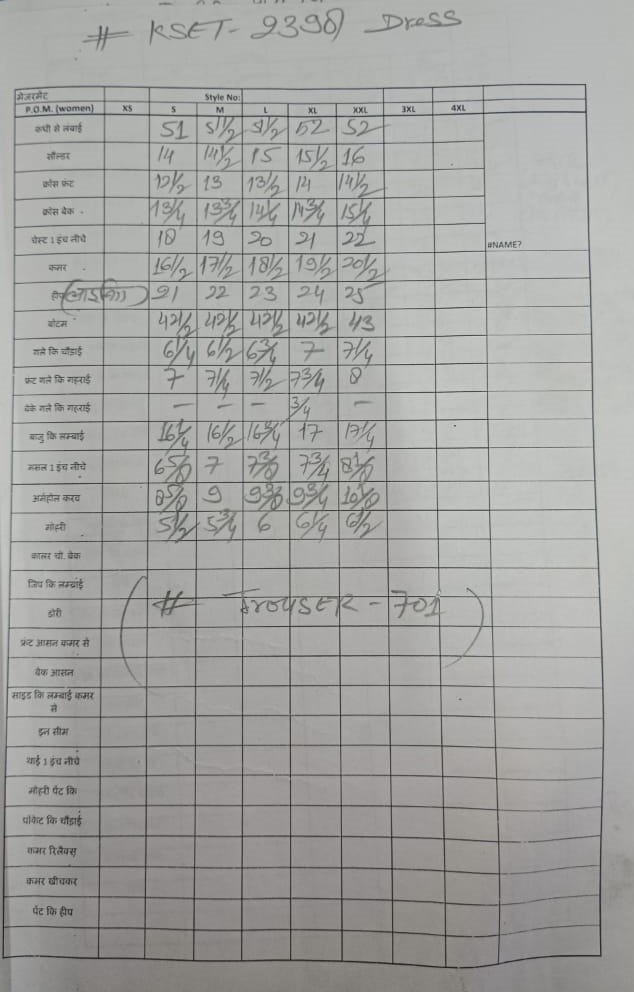 # KSET-2398 Dress
मेजरमेंट Style No:
P.O.M. (women) XS S M L XL XXL 3XL 4XL
कंधी से लंबाई 51 51 1/2 51 1/2 52 52
सोल्डर 14 14 1/2 15 15 1/2 16
क्रॉस फ्रंट 12 1/2 13 13 1/2 14 14 1/2
क्रॉस बेक 13 1/4 13 3/4 14 1/4 14 3/4 15 1/4
चेस्ट 1 इंच नीचे 18 19 20 21 22
#NAME?
कमर 16 1/2 17 1/2 18 1/2 19 1/2 20 1/2
हीप 21 22 23 24 25
बोटम 42 1/2 42 1/2 42 1/2 42 1/2 43
गले कि चौड़ाई 6 1/4 6 1/2 6 3/4 7 7 1/4
फ्रंट गले कि गहराई 7 7 1/4 7 1/2 7 3/4 8
बेके गले कि गहराई — — — 3/4 —
बाजु कि लम्बाई 16 1/4 16 1/2 16 3/4 17 17 1/4
मसल 1 इंच नीचे 6 5/8 7 7 3/8 7 3/4 8 1/8
अर्महोल करव 8 5/8 9 9 3/8 9 3/4 10 1/8
मोहरी 5 1/2 5 3/4 6 6 1/4 6 1/2
कालर चो. बेक
जिप कि लम्बाई
डोरी (# TrouSER - 701)
फ्रंट आसन कमर से
बेक आसन
साइड कि लम्बाई कमर
से
इन सीम
थाई 1 इंच नीचे
मोहरी पेंट कि
पॉकेट कि चौड़ाई
कमर रिलैक्स
कमर खीचकर
पेंट कि हीप